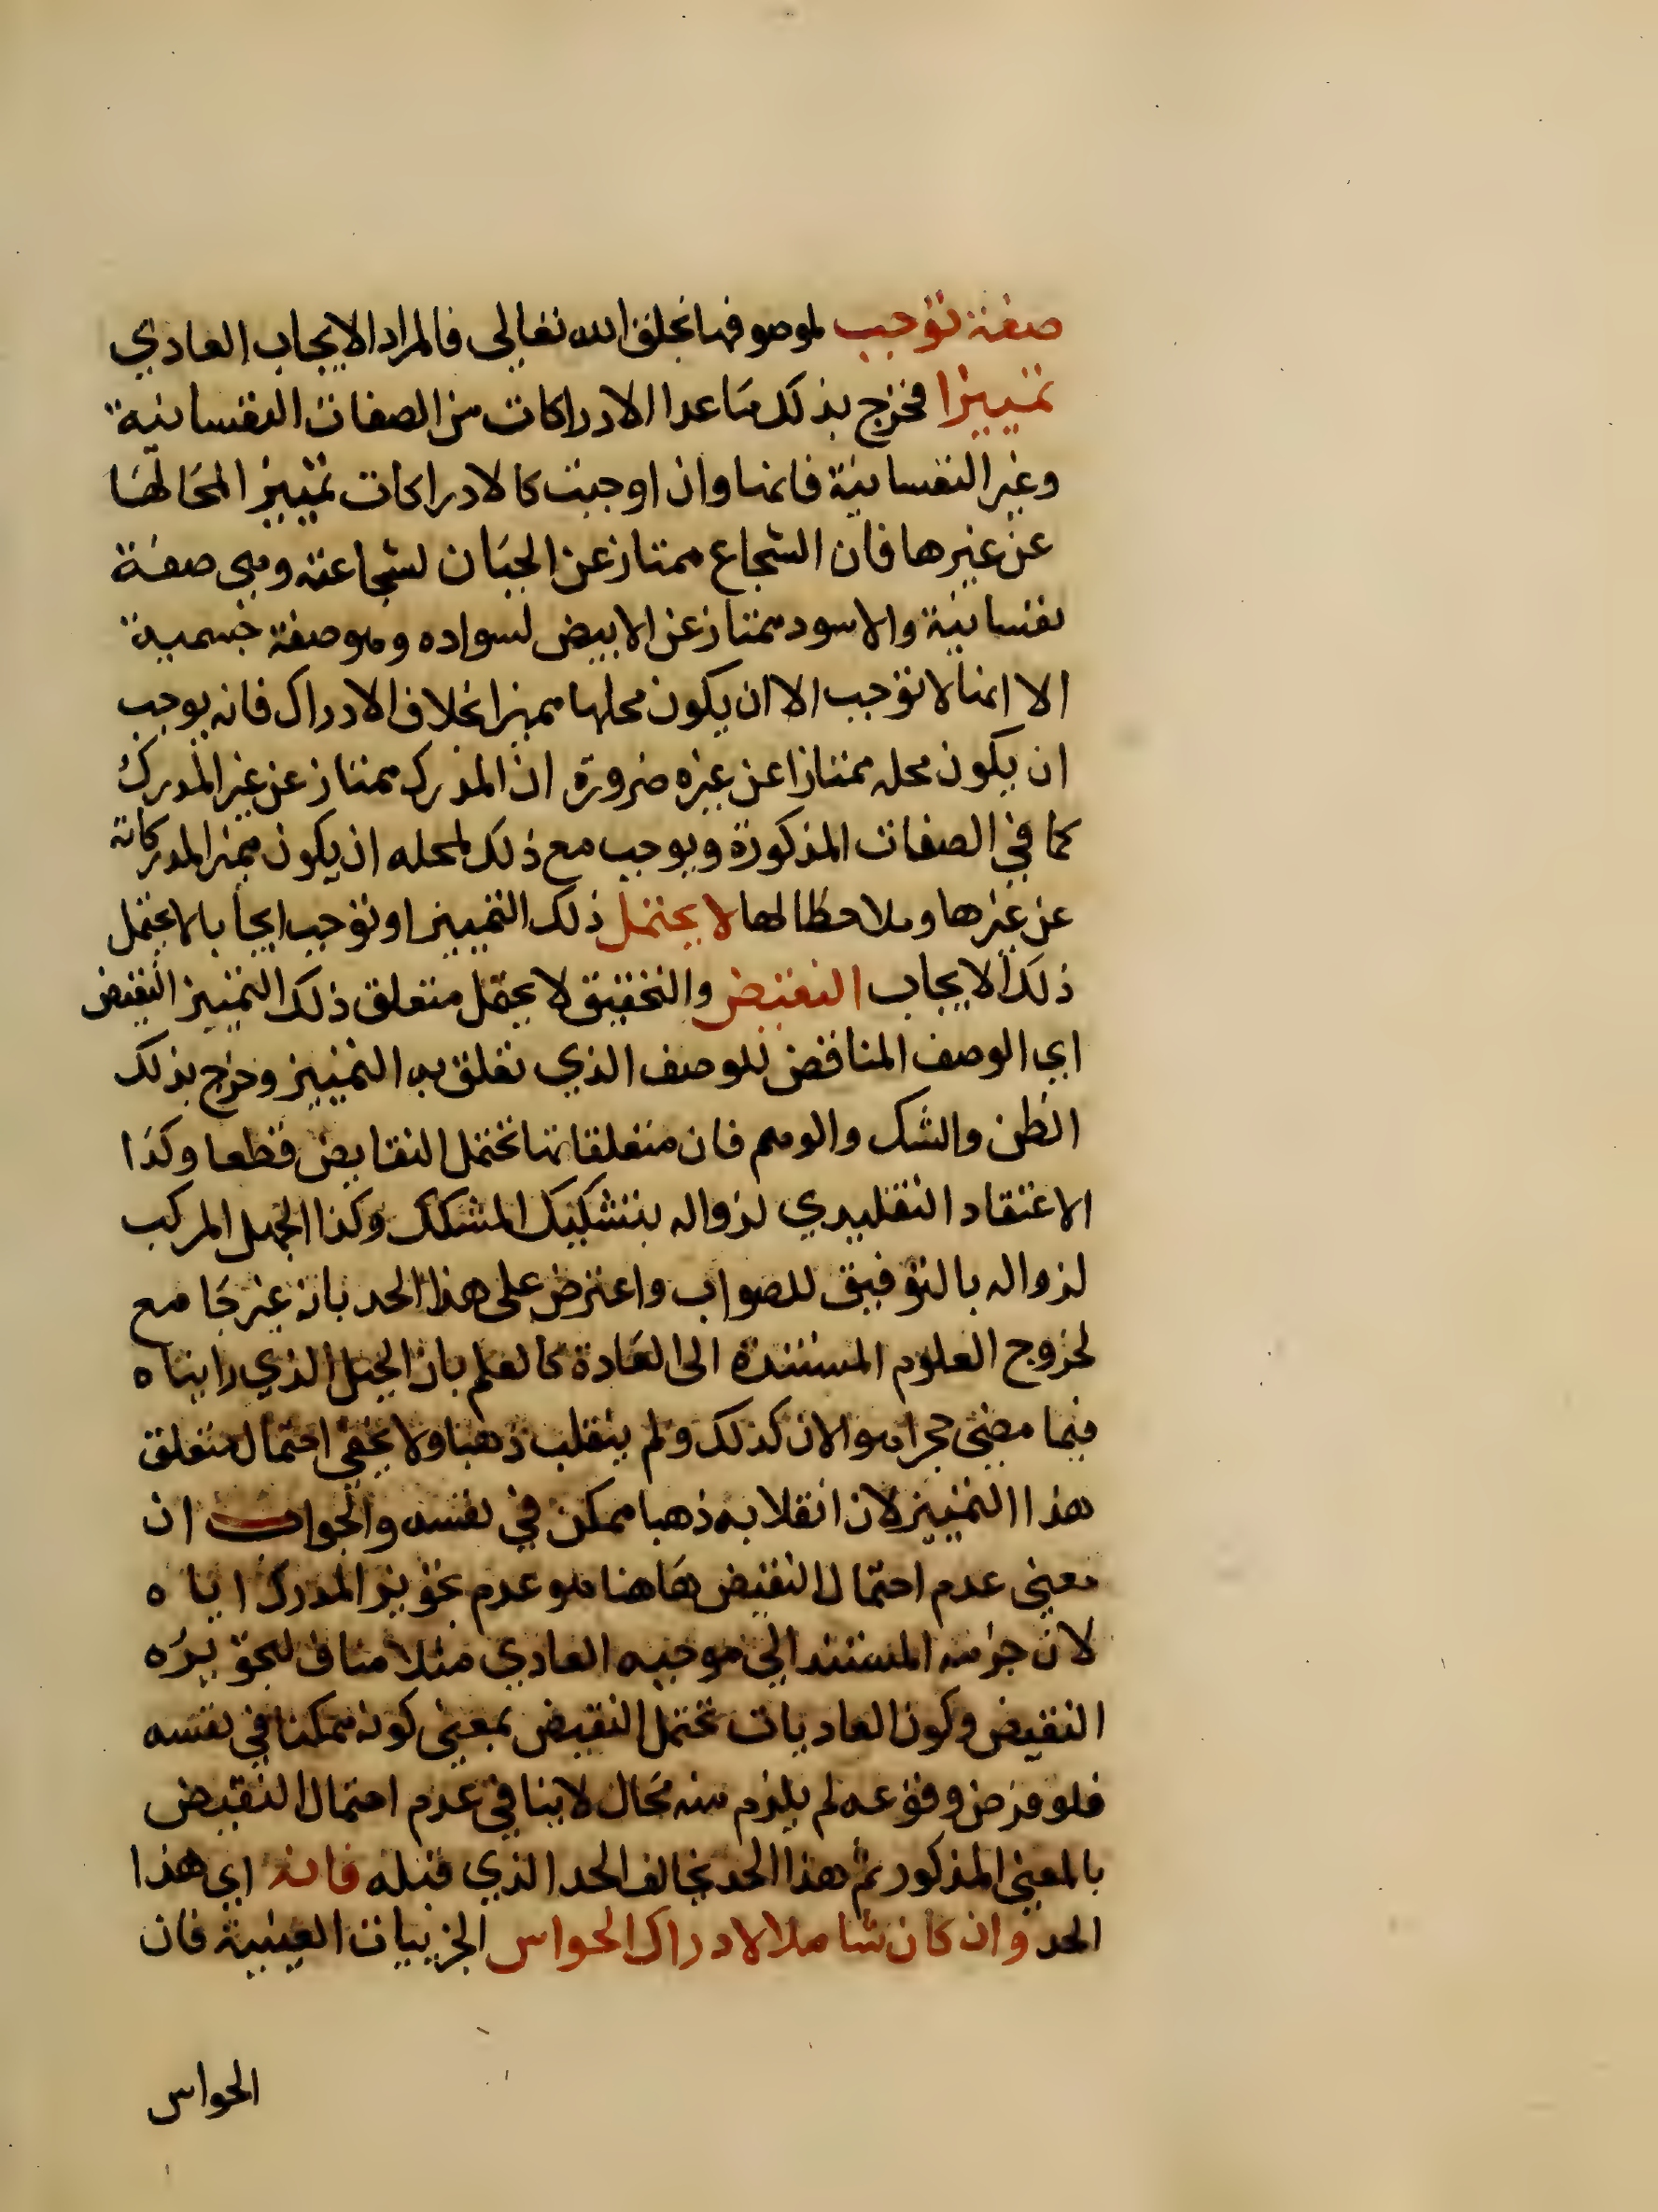 صفة توجب لموصوفها بخلق الله تعالى فالمراد الايجاب العادي
تمييزا فخرج بذلك ما عدا الادراكات من الصفات النفسانية
وغير النفسانية فانها وان اوجبت كالادراكات تمييز المحالها
عن غيرها فان الشجاع ممتاز عن الجبان لشجاعته وهي صفة
نفسانية والاسود ممتاز عن الابيض لسواده وهو صفة جسمية
الا انها لا توجب الا ان يكون محلها مميزا بخلاف الادراك فانه يوجب
ان يكون محله ممتازا عن غيره ضرورة ان المدرك ممتاز عن غير المدرك
كما في الصفات المذكورة ويوجب مع ذلك لمحله ان يكون مميز المدركاته
عن غيرها وملاحظا لها لا يحتمل ذلك التمييز او توجب ايجابا لا يحتمل
ذلك الايجاب النقيض والتحقيق لا يحتمل متعلق ذلك التمييز النقيض
اي الوصف المناقض للوصف الذي تعلق به التمييز وخرج بذلك
الظن والشك والوهم فان متعلقاتها تحتمل النقايض قطعا وكذا
الاعتقاد التقليدي لزواله بتشكيك المشكك وكذا الجهل المركب
لزواله بالتوفيق للصواب واعترض على هذا الحد بانه غير جامع
لخروج العلوم المستندة الى العادة كالعلم بان الجبل الذي رايناه
فيما مضى حجرا هو الان كذلك ولم ينقلب ذهبا ولا يخفى احتمال متعلق
هذا التمييز لان انقلابه ذهبا ممكن في نفسه والجواب ان
معنى عدم احتمال النقيض هاهنا هو عدم تجويز المدرك اياه
لان جزمه المستند الى موجبه العادي مثلا مناف لتجويزه
النقيض وكون العاديات تحتمل النقيض بمعنى كونه ممكنا في نفسه
فلو فرض وقوعه لم يلزم منه محال لا ينافي عدم احتمال النقيض
بالمعنى المذكور ثم هذا الحد يخالف الحد الذي قبله فانه اي هذا
الحد وان كان شاملا لادراك الحواس الجزييات العينية فان
الحواس